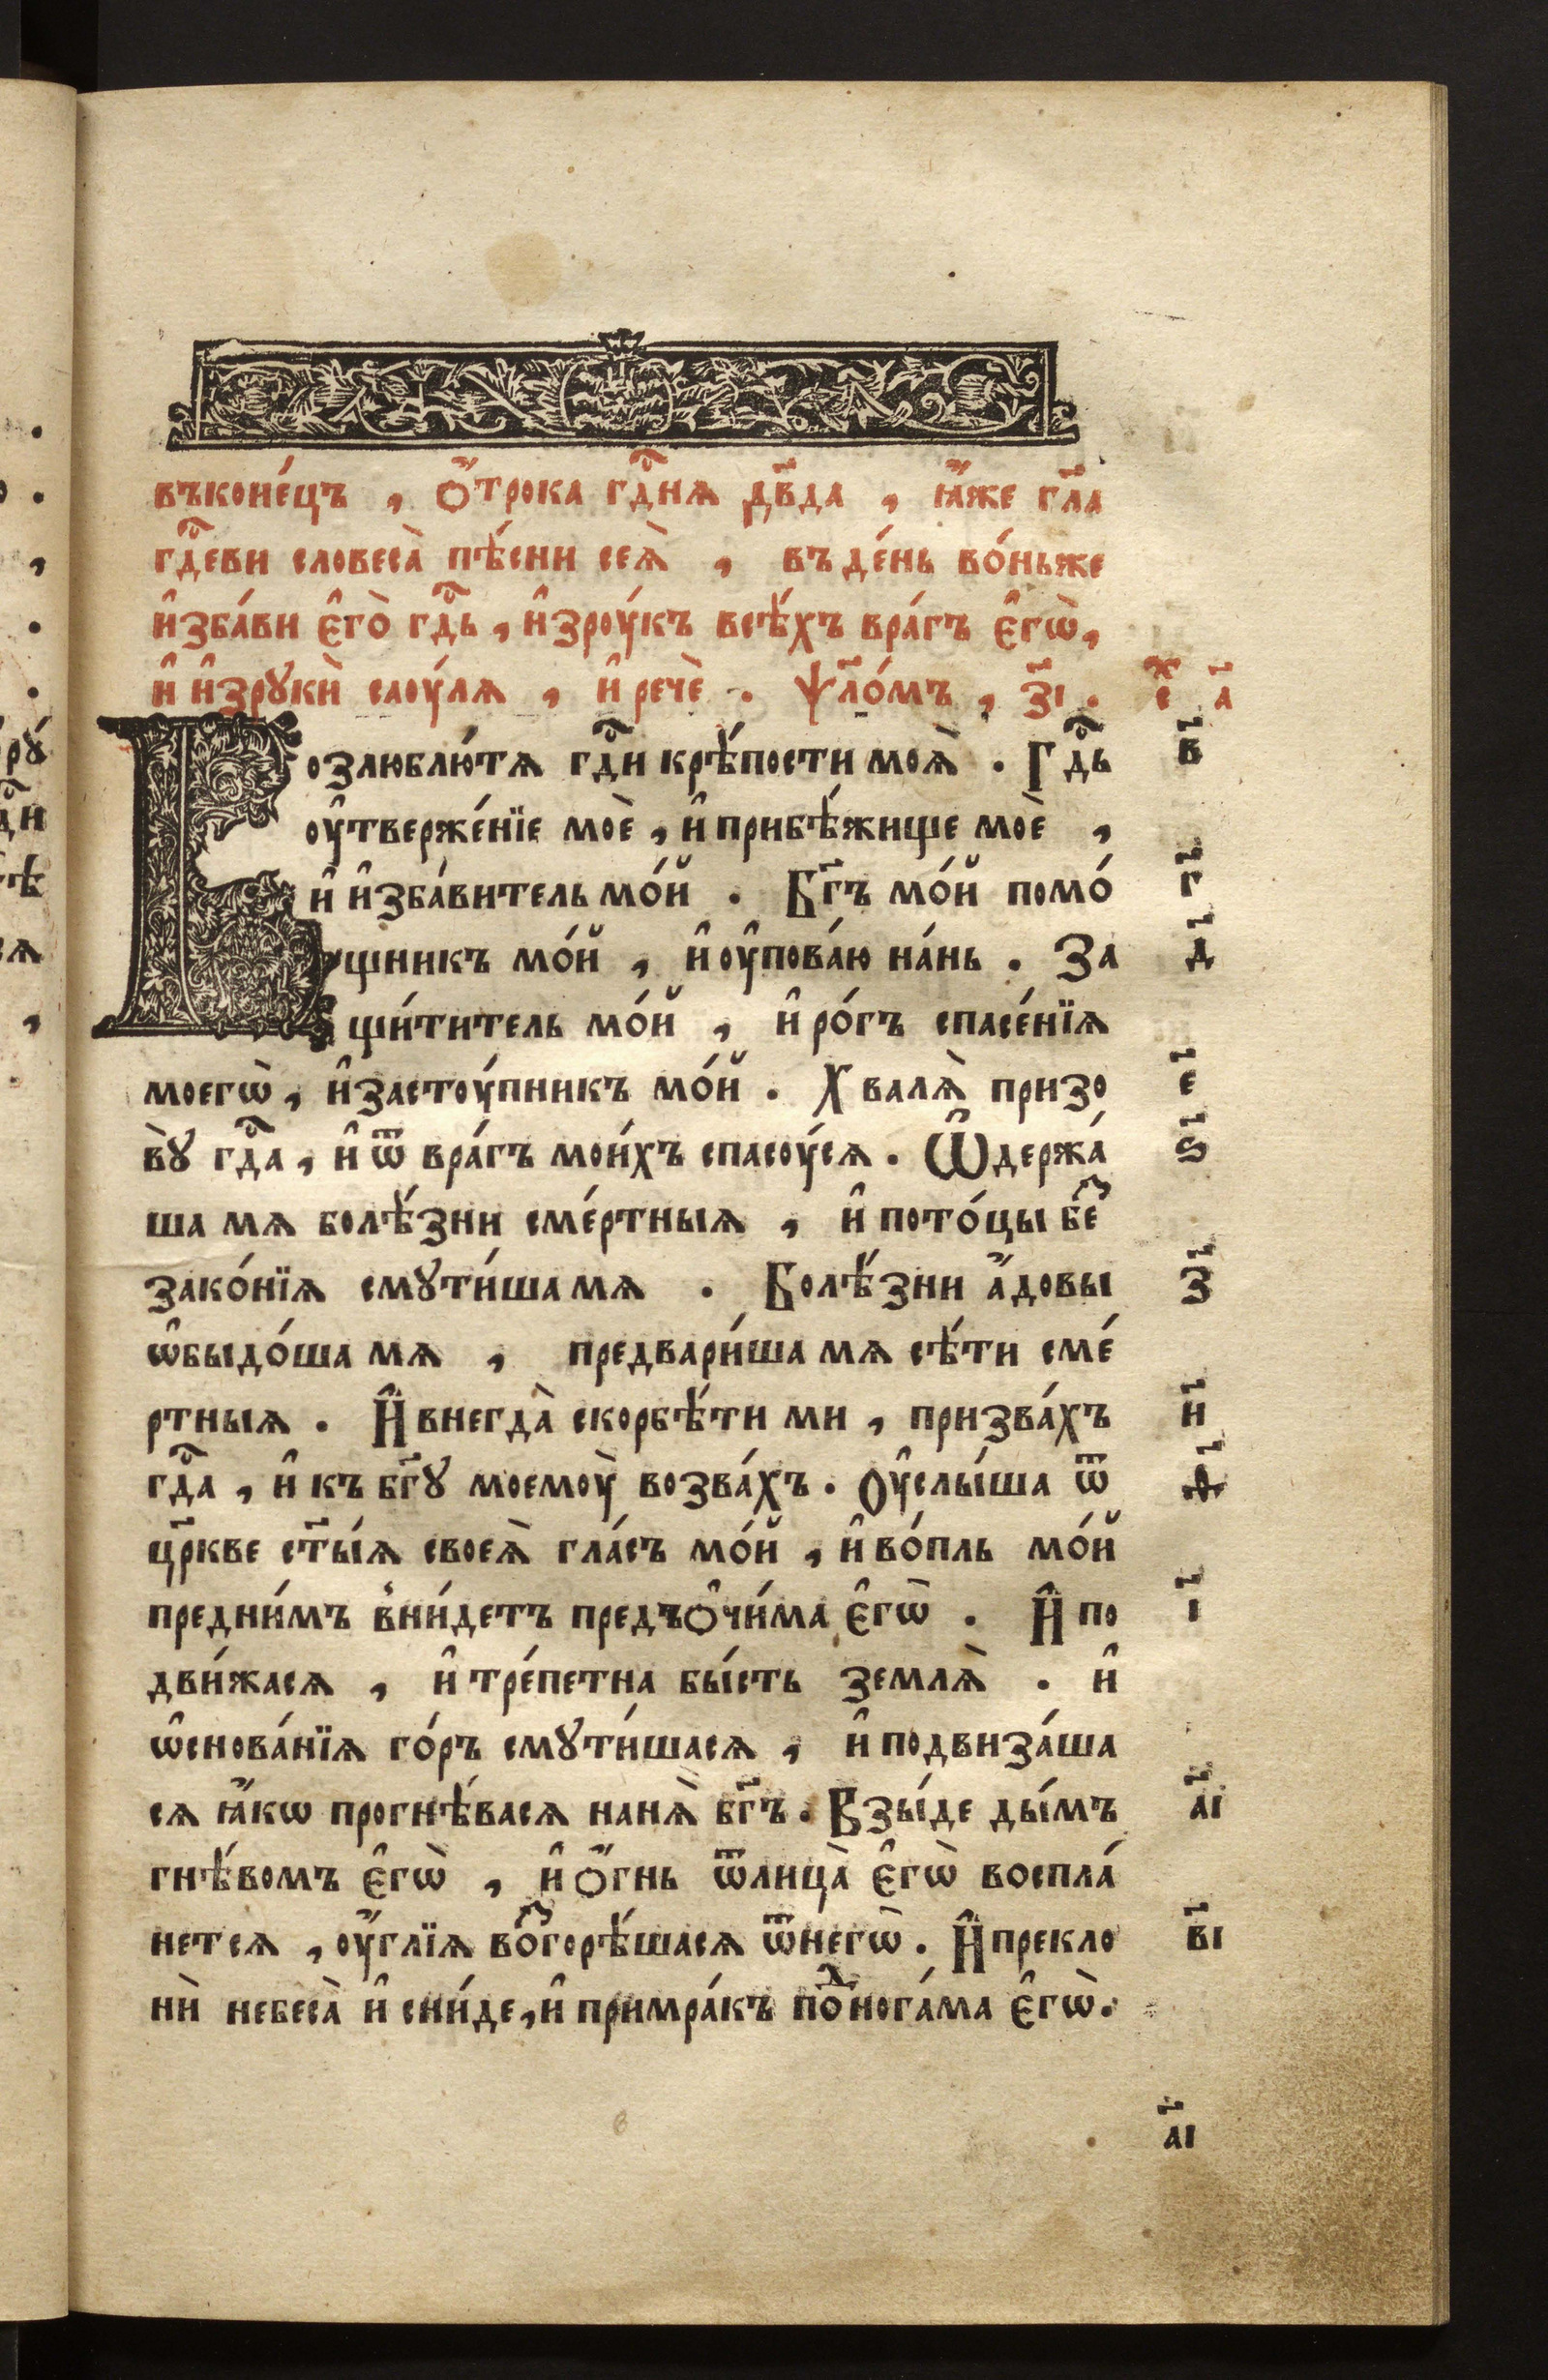 въконе́цъ , ѻ҆́трока гдⷭ҇ня дв҃да , ꙗ҆́же гл҃а
гдⷭ҇еви словеса̀ пѣ́сни сеѧ̀ , въ де́нь во́ньже
и҆зба́ви є҆го̀ гдⷭ҇ь , и҆зроу́къ всѣ́хъ вра́гъ є҆гѡ̀ ,
и҆ и҆зрꙋки̇̀ саоу́лѧ , и҆ речѐ . ѱл҃о́мъ , з҃і . сⷤ а҃
Возлюблю́тѧ гдⷭ҇и крѣ́пости моѧ̀ . Гдⷭ҇ь в҃
оу҆твержⷣе́нїе моѐ , и҆ прибѣ́жище моѐ ,
и҆ и҆зба́витель мо́й . Бг҃ъ мо́й помо́ г҃
щникъ мо́й , и҆ оу҆пова́ю на́нь . За д҃
щи́титель мо́й , и҆ ро́гъ спасе́нїѧ
моегѡ̀ , и҆ застоу́пникъ мо́й . Хвалѧ̀ призо е҃
вꙋ̀ гдⷭ҇а , и҆ ѿ вра́гъ мои́хъ спасоу́сѧ . Ѡ҆держа́ ѕ҃
ша мѧ болѣ́зни сме́ртныѧ , и҆ пото́цы беⷥ
зако́нїѧ смꙋти́ша мѧ . Болѣ́зни а҆́довы з҃
ѡ҆быдо́ша мѧ , предвари́ша мѧ сѣ́ти сме́
ртныѧ . И҆ внегда̀ скорбѣ́ти ми , призва́хъ и҃
гдⷭ҇а , и҆ къ бг҃ꙋ моемоу̀ возва́хъ . Оу҆слы́ша ѿ ѳ҃
цр҃кве ст҃ы́ѧ своеѧ̀ гла́съ мо́й , и҆ во́пль мо́й
предни́мъ вни́детъ предъѻ҆чи́ма є҆гѡ̀ . И҆ по і҃
дви́жасѧ , и҆ тре́петна бы́сть землѧ̀ . и҆
ѡ҆снова́нїѧ го́ръ смꙋти́шасѧ , и҆ подвиза́ша
сѧ ꙗ҆́кѡ прогнѣ́васѧ нанѧ̀ бг҃ъ . Взы́де ды́мъ а҃і
гнѣ́вомъ є҆гѡ̀ , и҆ ѻ҆́гнь ѿлица̀ є҆гѡ̀ воспла́
нетсѧ , оу҆́глїѧ воⷥгорѣ́шасѧ ѿнегѡ̀ . И҆ прекло в҃і
ни̇̀ небеса̀ и҆ сни́де , и҆ примра́къ поⷣнога́ма є҆гѡ̀ .
а҃і